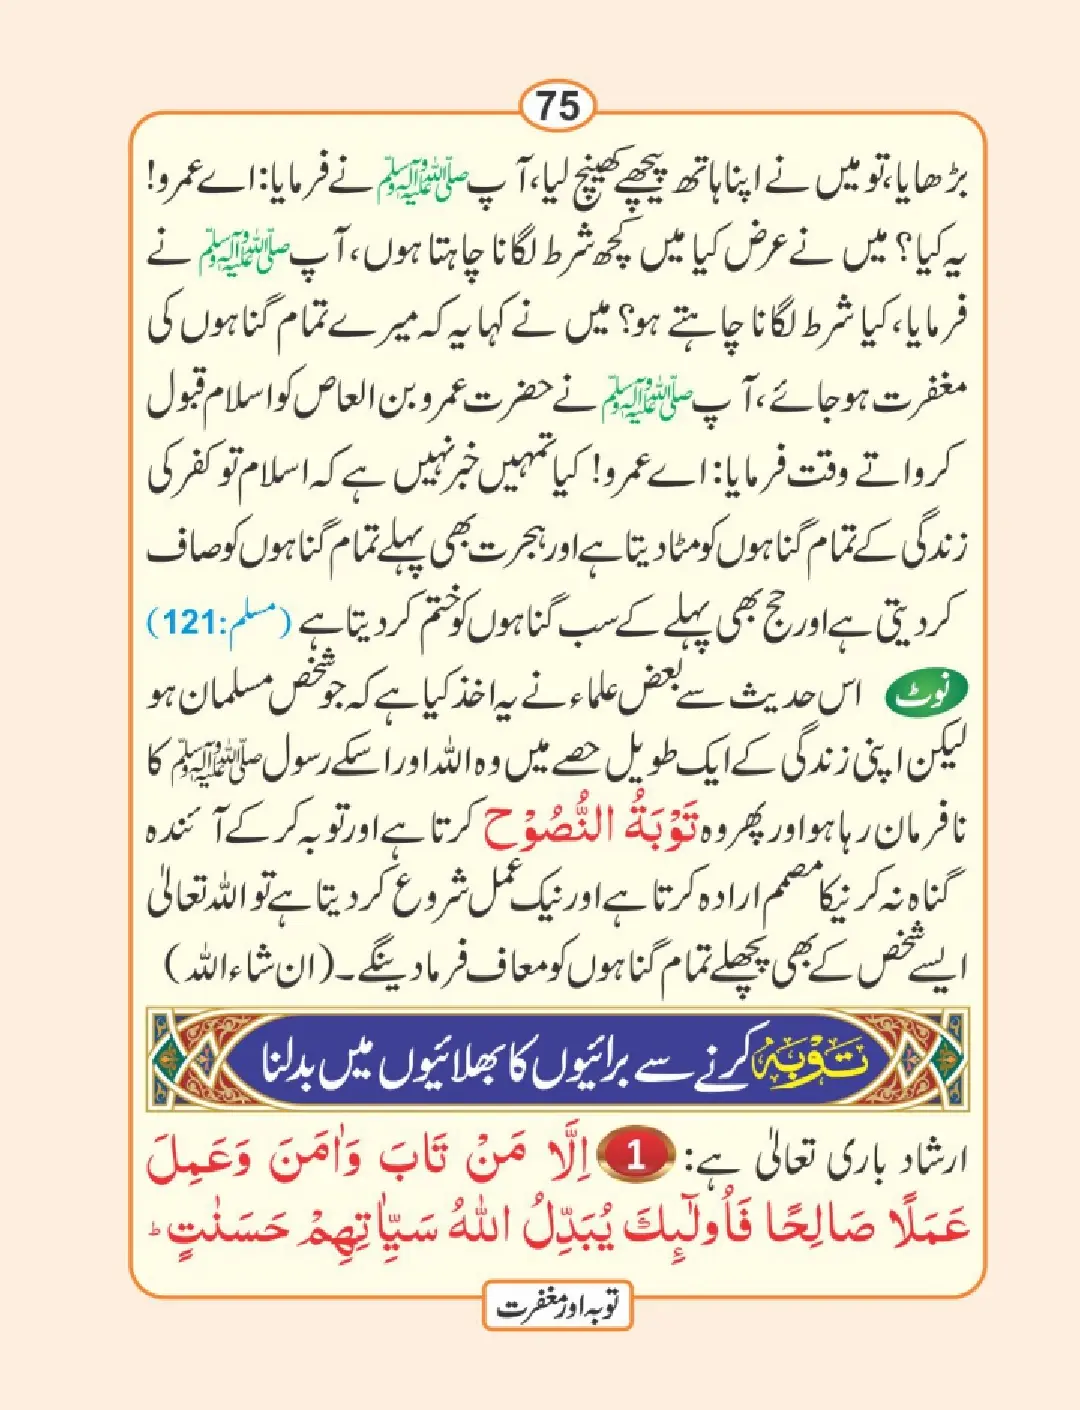 75
بڑھایا،تو میں نے اپنا ہاتھ پیچھے کھینچ لیا،آپ ﷺ نے فرمایا: اے عمرو!
یہ کیا؟ میں نے عرض کیا میں کچھ شرط لگانا چاہتا ہوں، آپ ﷺ نے
فرمایا، کیا شرط لگانا چاہتے ہو؟ میں نے کہا یہ کہ میرے تمام گناہوں کی
مغفرت ہو جائے، آپ ﷺ نے حضرت عمرو بن العاص کو اسلام قبول
کرواتے وقت فرمایا: اے عمرو! کیا تمہیں خبر نہیں ہے کہ اسلام تو کفر کی
زندگی کے تمام گناہوں کو مٹا دیتا ہے اور ہجرت بھی پہلے تمام گناہوں کو صاف
کر دیتی ہے اور حج بھی پہلے کے سب گناہوں کو ختم کر دیتا ہے (مسلم:121)
نوٹ اس حدیث سے بعض علماء نے یہ اخذ کیا ہے کہ جو شخص مسلمان ہو
لیکن اپنی زندگی کے ایک طویل حصے میں وہ اللہ اور اسکے رسول ﷺ کا
نافرمان رہا ہو اور پھر وہ تَوْبَةُ النُّصُوْح کرتا ہے اور توبہ کر کے آئندہ
گناہ نہ کرنیکا مصمم ارادہ کرتا ہے اور نیک عمل شروع کر دیتا ہے تو اللہ تعالیٰ
ایسے شخص کے بھی پچھلے تمام گناہوں کو معاف فرما دینگے۔(ان شاء اللہ)
توبہ کرنے سے برائیوں کا بھلائیوں میں بدلنا
ارشاد باری تعالیٰ ہے: 1 اِلَّا مَنْ تَابَ وَاٰمَنَ وَعَمِلَ
عَمَلًا صَالِحًا فَاُولٰٓئِكَ يُبَدِّلُ اللّٰهُ سَيِّاٰتِهِمْ حَسَنٰتٍ ؕ
توبہ اور مغفرت